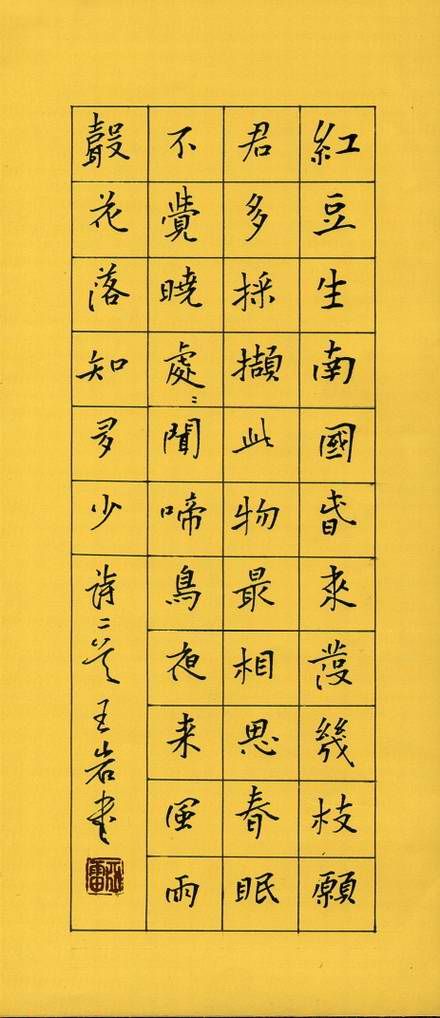 紅豆生南國春來發幾枝願
君多採擷此物最相思春眠
不覺曉處〻聞啼鳥夜来風雨
聲花落知多少詩二首王岩書